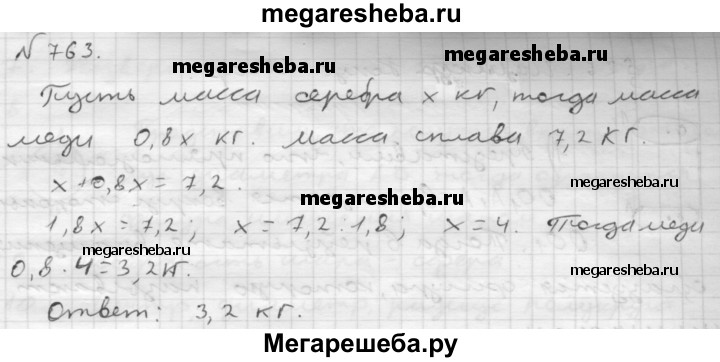 megaresheba.ru
№ 763.
megaresheba.ru megaresheba.ru
Пусть масса серебра x кг, тогда масса
меди 0,8x кг. Масса сплава 7,2 кг.
x + 0,8x = 7,2.
megaresheba.ru megaresheba.ru
1,8x = 7,2; x = 7,2 : 1,8; x = 4. Тогда меди
megaresheba.ru
0,8 · 4 = 3,2 кг.
megaresheba.ru
Ответ: 3,2 кг.
Мегарешеба.ру